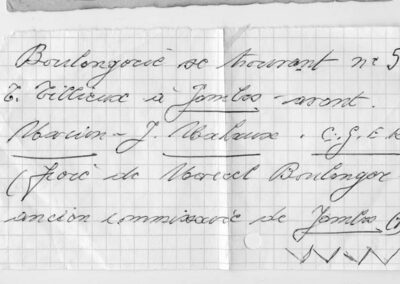 Boulangerie se trouvant n° 5
T. Tillieux à Jambes - avant.
Marion - J. Malaux. C.G.E.R
(père de Marcel Boulanger
ancien commissaire de Jambes